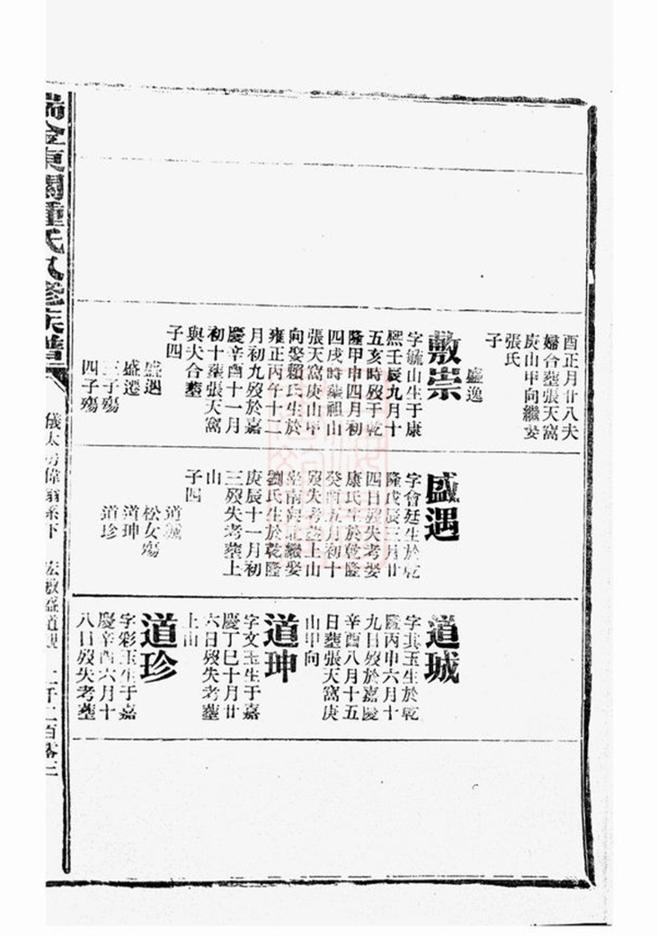 酉正月廿八夫
婦合塟張天窩
庚山甲向繼娶
張氏
子
盛逸
敷崇
字毓山生于康
熙壬辰九月十
五亥時歿于乾
隆甲申四月初
四戌時塟祖山
張天窩庚山甲
向娶賴氏生於
雍正丙午十二
月初九歿於嘉
慶辛酉十一月
初十塟張天窩
與夫合塟
子四
盛遇
盛遷
三子殤
四子殤
盛遇
字會廷生於乾
隆戊辰三月廿
四日歿失考娶
康氏生於乾隆
癸酉五月初十
歿失考塟上山
堂南海址繼娶
劉氏生於乾隆
庚辰十一月初
三歿失考塟上
山
子四
道城
松女殤
道珅
道珍
道城
字其玉生於乾
隆丙申六月十
九日歿於嘉慶
辛酉八月十五
日塟張天窩庚
山甲向
道珅
字文玉生于嘉
慶丁巳十月廿
六日歿失考塟
上山
道珍
字彩玉生于嘉
慶辛酉六月十
八日歿失考塟
瑞金東關鍾氏八修族譜
儀太房偉翁系下
宏敷盛道
二百零二